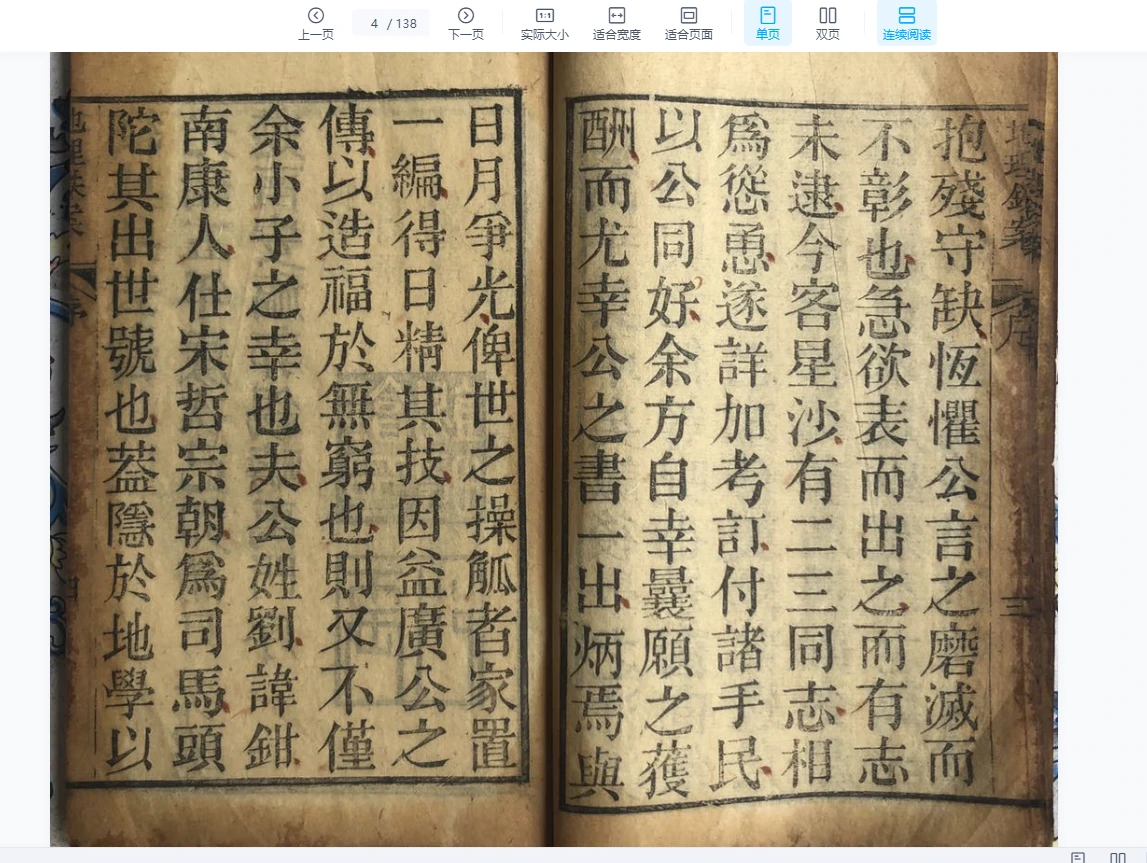 上一页
4 / 138
下一页
1:1
实际大小
适合宽度
适合页面
单页
双页
连续阅读
抱殘守缺恆懼公言之磨滅而
不彰也急欲表而出之而有志
未逮今客星沙有二三同志相
爲慫恿遂詳加考訂付諸手民
以公同好余方自幸曩願之獲
酬而尤幸公之書一出炳焉與
日月爭光俾世之操觚者家置
一編得日精其技因益廣公之
傳以造福於無窮也則又不僅
余小子之幸也夫公姓劉諱鉗
南康人仕宋哲宗朝爲司馬頭
陀其出世號也葢隱於地學以